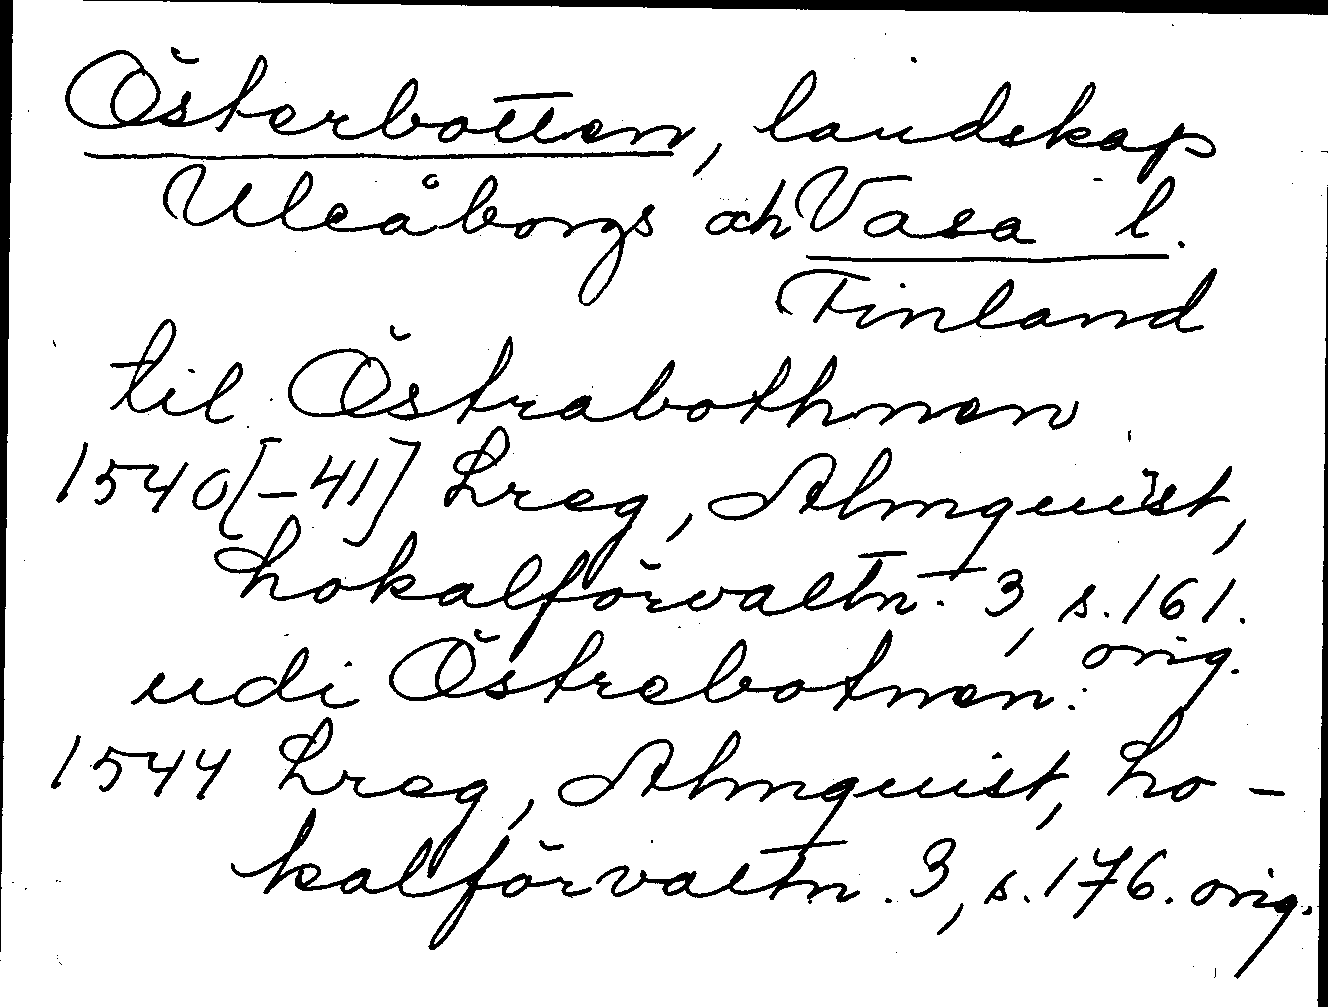 Österbotten, landskap
Uleåborgs och Vasa l.
Finland
til Östrabothnen
1540[-41] Lreg, Almquist,
Lokalförvaltn. 3, s. 161.
orig.
udi Östrebotnen.
1544 Lreg, Almquist, Lo-
kalförvaltn. 3, s. 176. orig.